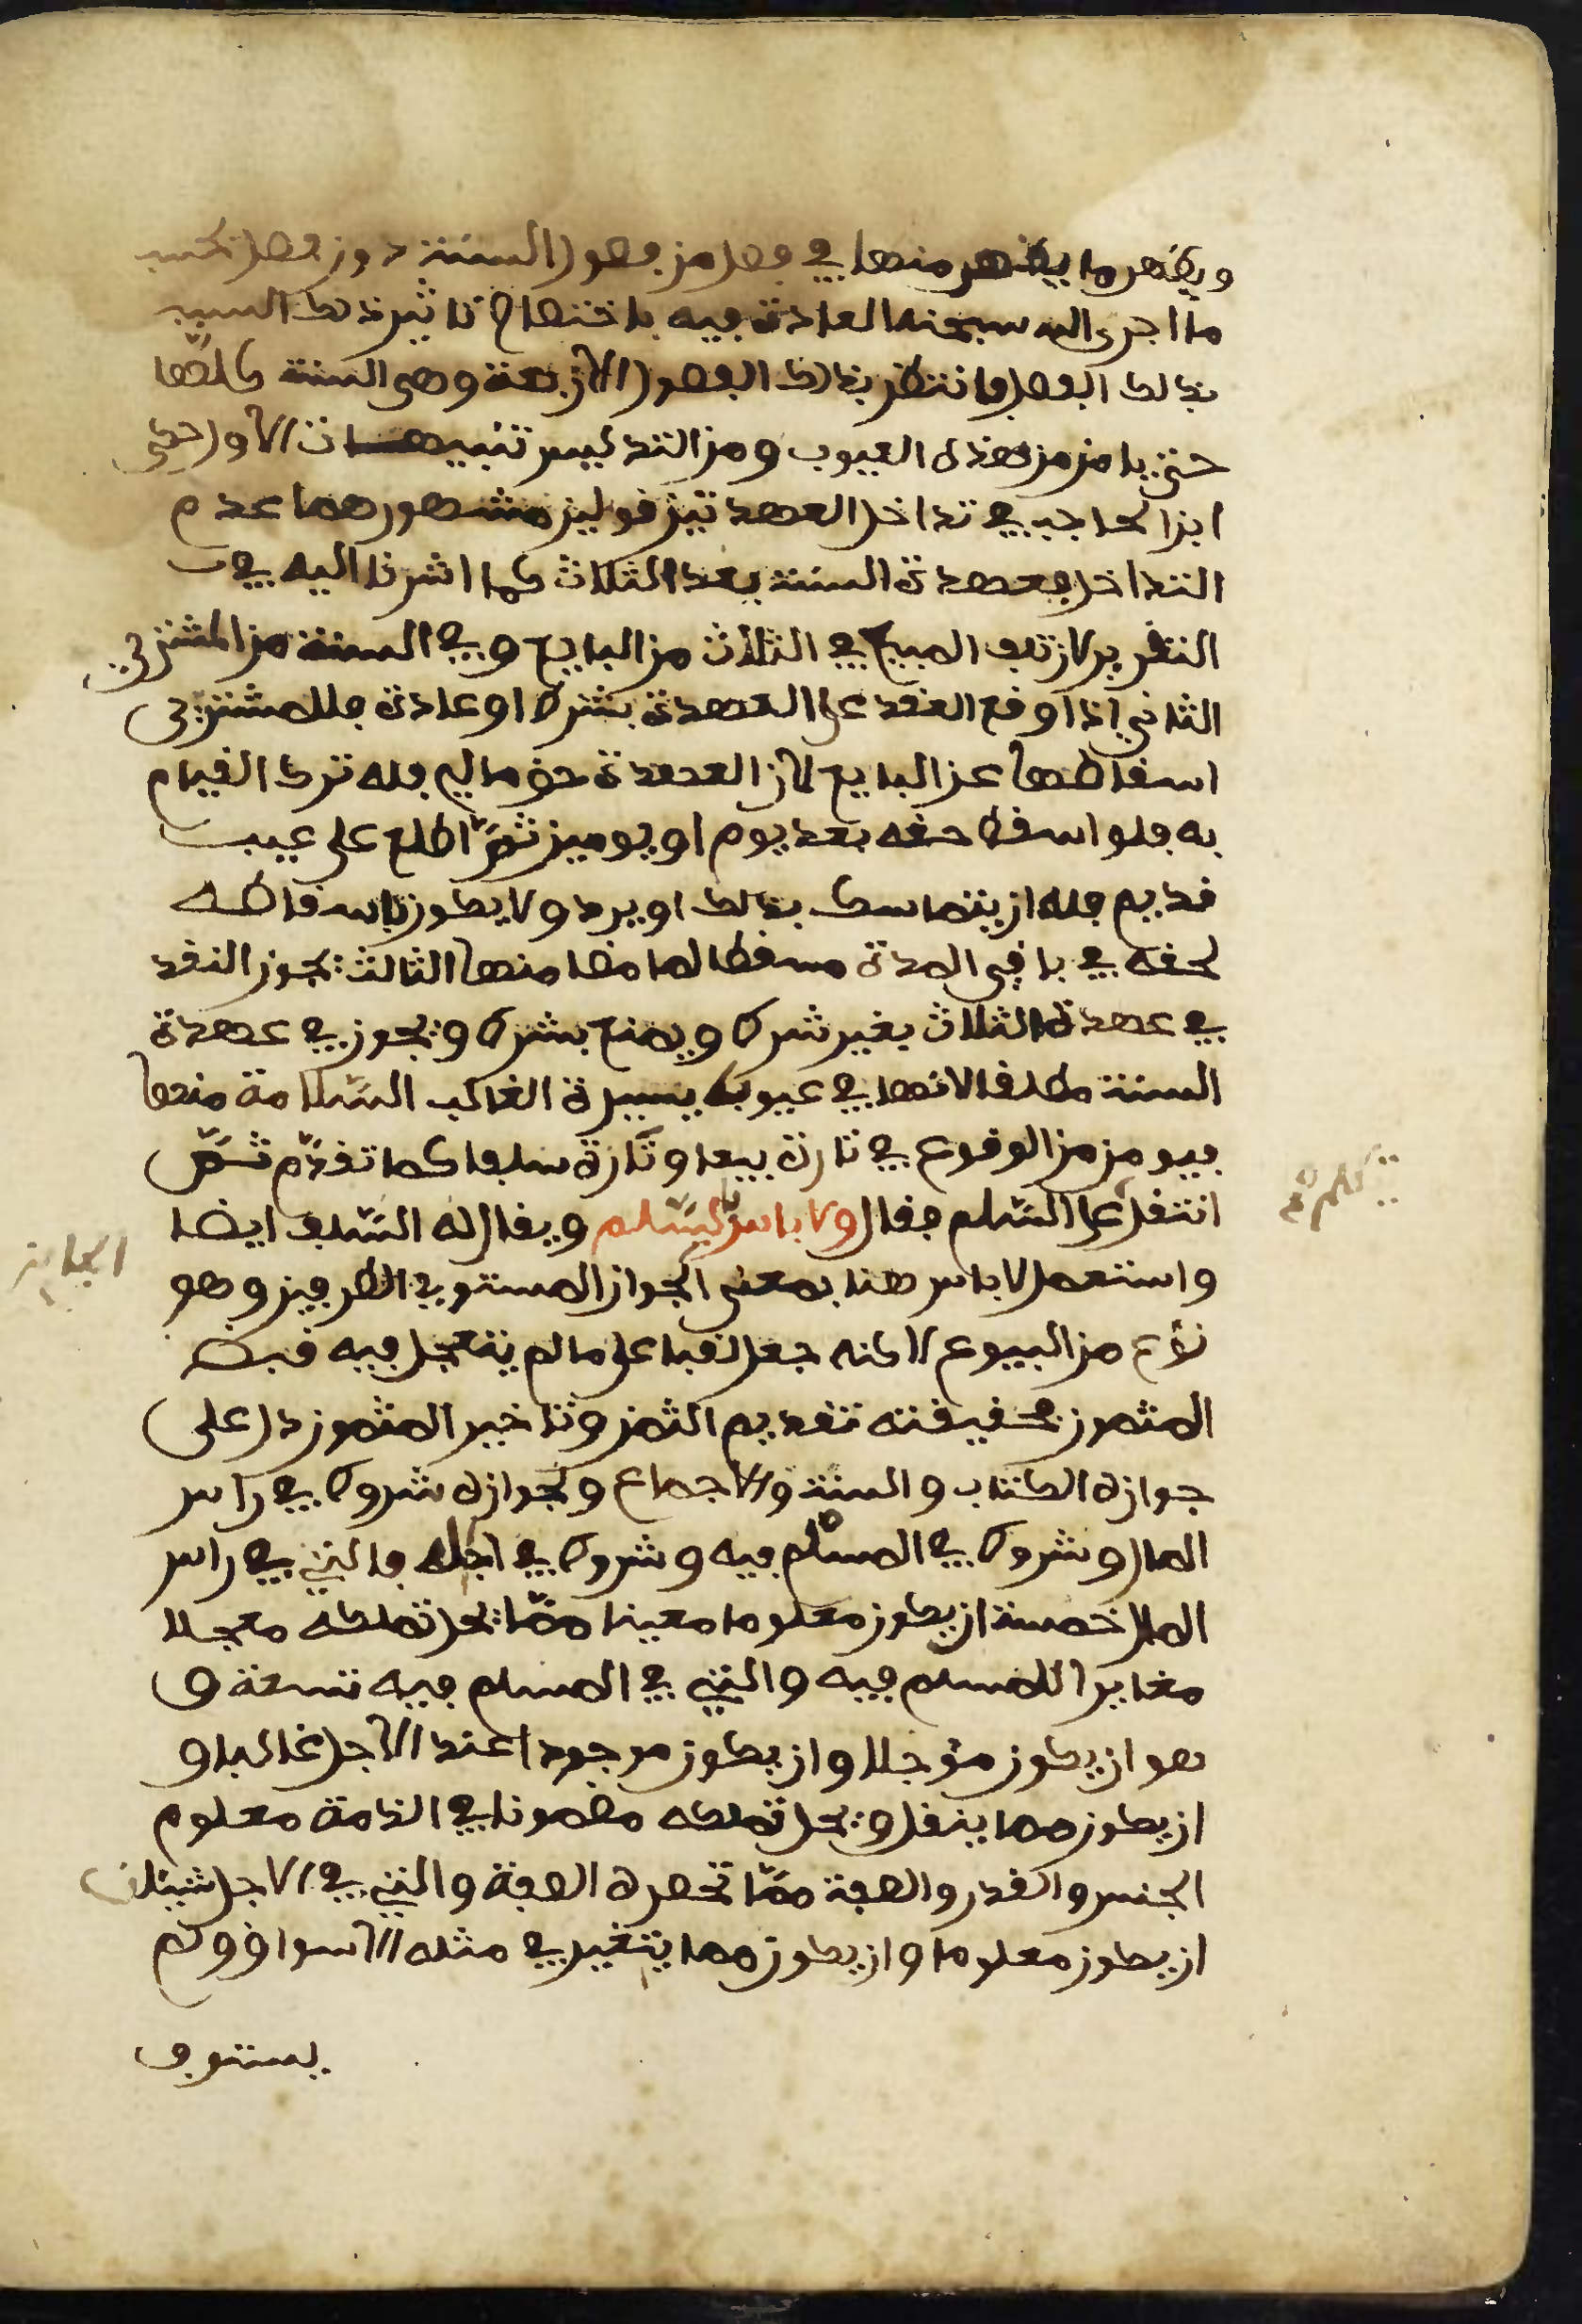 ويظهر ما يظهر منها في فصل من فصول السنة دون فصل بحسب
ما اجرى الله سبحنه العادة فيه باختصاص تاثير ذلك السبب
بذلك الفصل فانتظر بذلك الفصول الاربعة وهي السنة كلها
حتى يامن من هذه العيوب ومن التدليس تنبيهات الاول حكى
ابن الحاجب في تداخل العهدتين قولين مشهورهما عدم
التداخل فعهدة السنة بعد الثلاث كما اشرنا اليه في
التقرير لان تلف المبيع في الثلاث من البايع وفي السنة من المشتري
الثاني اذا وقع العقد على العهدة بشرط او عادة فللمشتري
اسقاطها عن البايع لان العهدة حق مالي فله ترك القيام
به فلو اسقط حقه بعد يوم او يومين ثم اطلع على عيب
قديم فله ان يتماسك بذلك او يرد ولا يكون باسقاطه
لحقه في باقي المدة مسقطا لما مضا منها الثالث يجوز النقد
في عهدة الثلاث بغير شرط ويمنع بشرط ويجوز في عهدة
السنة مطلقا لانها في عيوب يسيرة الغالب السلامة منها
فيومن من الوقوع في تارة بيعا وتارة سلفا كما تقدم ثم
انتقل على السلم فقال ولا باس بالسلم ويقال له السلف ايضا
واستعمل لا باس هنا بمعنى الجواز المستوي الطرفين وهو
نوع من البيوع لاكنه جعل لقبا على ما لم يتعجل فيه قبض
المثمون فحقيقته تقديم الثمن وتاخير المثمون دل على
جوازه الكتاب والسنة والاجماع ولجوازه شروط في راس
المال وشروط في المسلم فيه وشروط في اجله فالتي في راس
المال خمسة ان يكون معلوما معينا مما يحل تملكه معجلا
مغايرا للمسلم فيه والتي في المسلم فيه تسعة و
هو ان يكون مؤجلا وان يكون موجودا عند الاجل غالبا و
ان يكون مما ينقل ويحل تملكه مضمونا في الذمة معلوم
الجنس والقدر والصفة مما تحصره الصفة والتي في الاجل شيئان
ان يكون معلوما وان يكون مما يتغير في مثله الاسواق ولم
يستوف
الجايز